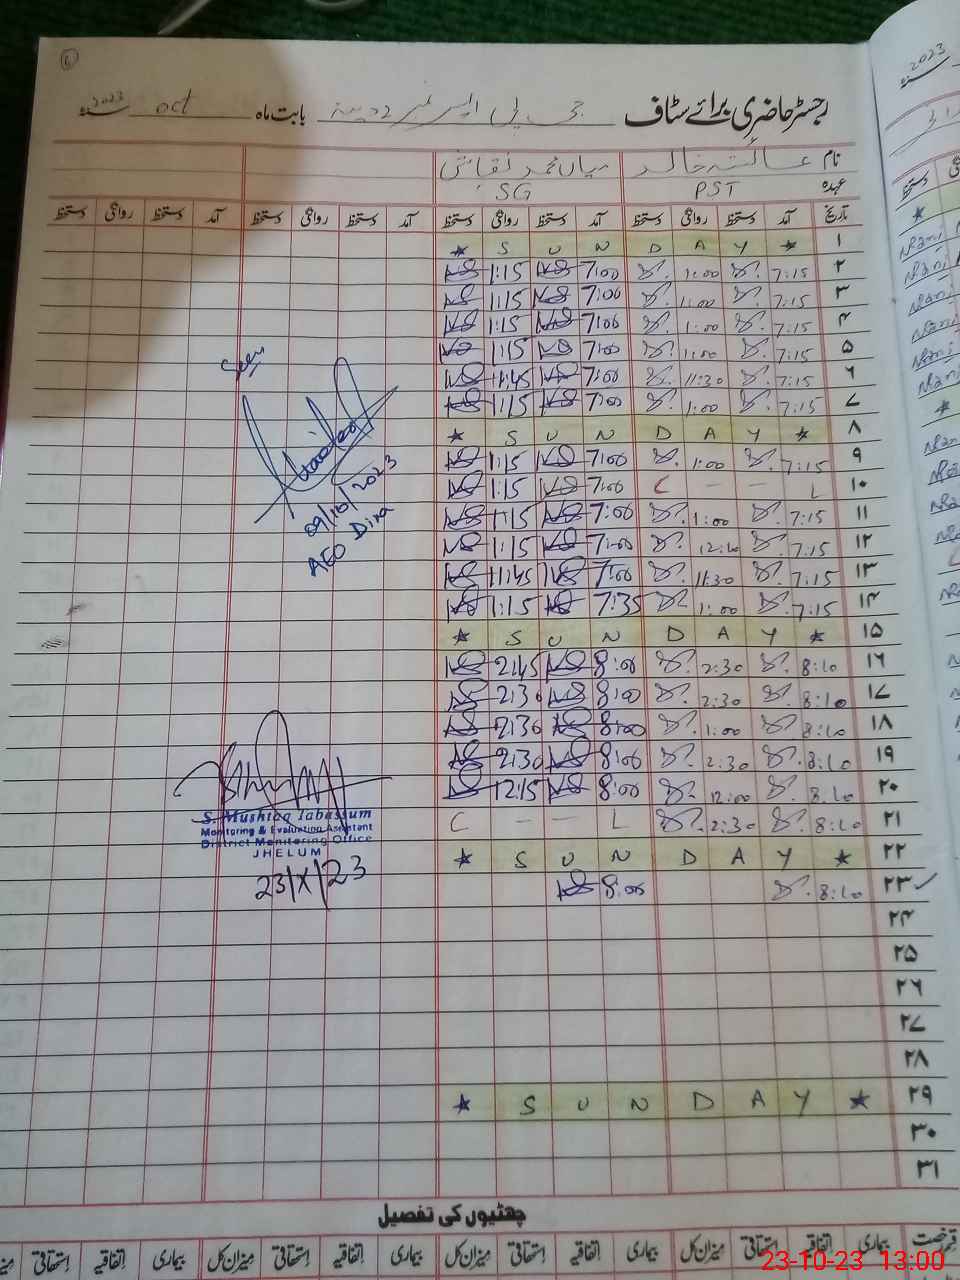 6
رجسٹر حاضری برائے سٹاف جی پی ایس نمبر 2 دینہ بابت ماہ oct سنہ 2023
نام عائشہ خالد میاں محمد نقاش
عہدہ PST SG
تاریخ آمد دستخط روانگی دستخط آمد دستخط روانگی دستخط آمد دستخط روانگی دستخط آمد دستخط روانگی دستخط
۱ ★ S U N D A Y ★
۲ 7:15 1:00 7:00 NS 1:15 NS
۳ 7:15 1:00 7:00 NS 1:15 NS
۴ 7:15 1:00 7:00 NS 1:15 NS
۵ 7:15 1:00 7:00 NS 1:15 NS
۶ 7:15 11:30 7:00 NS 11:45 NS
۷ 7:15 1:00 7:00 NS 1:15 NS
۸ ★ S U N D A Y ★
۹ 7:15 1:00 7:00 NS 1:15 NS
۱۰ C – – L 7:00 NS 1:15 NS
۱۱ 7:15 1:00 7:00 NS 1:15 NS
۱۲ 7:15 7:00 NS 1:15 NS
۱۳ 7:15 11:30 7:00 NS 11:45 NS
۱۴ 7:15 1:00 7:35 NS 1:15 NS
۱۵ ★ S U N D A Y ★
۱۶ 8:10 2:30 8:00 NS 2:45 NS
۱۷ 8:10 2:30 8:00 NS 2:30 NS
۱۸ 8:10 1:00 8:00 NS 2:30 NS
۱۹ 8:10 2:30 8:00 NS 2:30 NS
۲۰ 8:10 12:00 8:00 NS 12:15 NS
۲۱ 8:10 2:30 C – – L
۲۲ ★ S U N D A Y ★
۲۳ ✓ 8:10 8:00 NS
۲۴
۲۵
۲۶
۲۷
۲۸
۲۹ ★ S U N D A Y ★
۳۰
۳۱
Seen
09/10/2023
AEO Dina
S. Mushtaq Tabassum
Monitoring & Evaluation Assistant
District Monitoring Office
JHELUM
23/X/23
چھٹیوں کی تفصیل
قسم رخصت بیماری اتفاقیہ استحقاقی میزان کل بیماری اتفاقیہ استحقاقی میزان کل بیماری اتفاقیہ استحقاقی میزان کل بیماری اتفاقیہ استحقاقی
23-10-23 13:00
2023